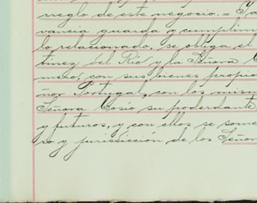 rreglo de este negocio. - Y
vancia guarda y cumplimi
lo relacionado, se obliga el
tinez del Rio y la Señora
con sus bienes propio
ñor Portugal, con los mism
Señora Cosio su poderdante
y futuros, y con ellos se some
ro y jurisdicción de los Señor